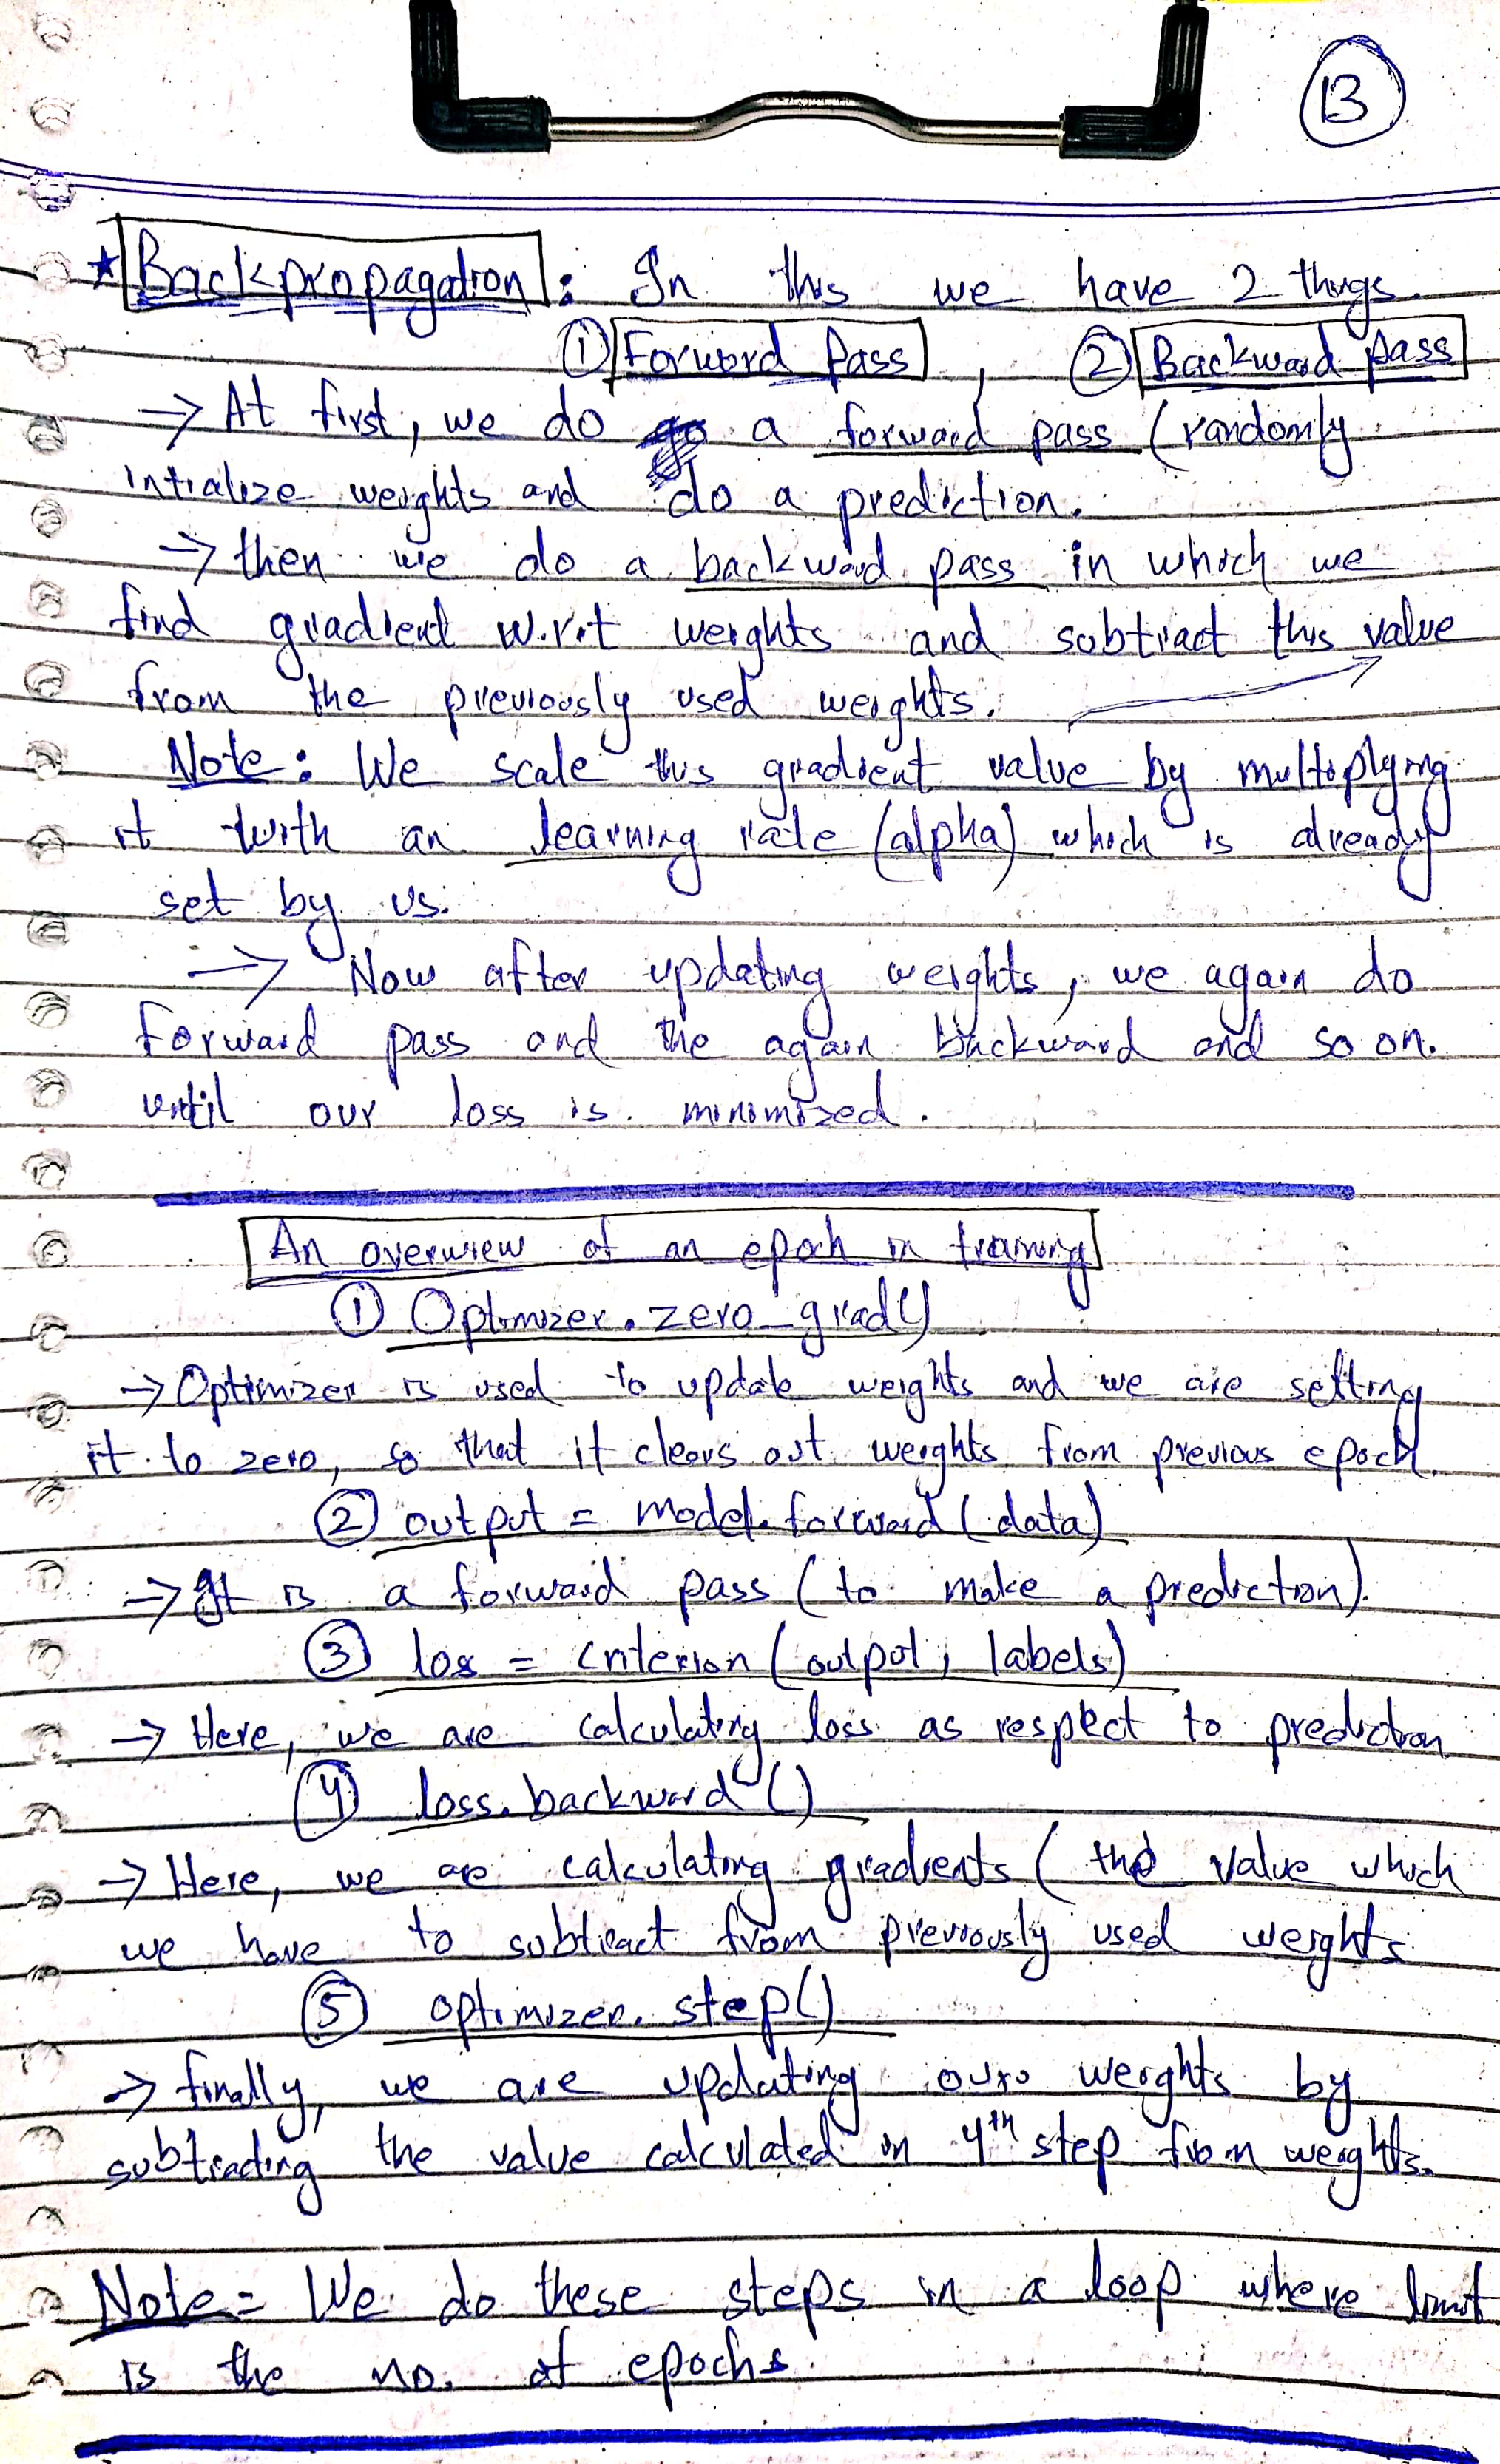 13
★ Backpropagation : In this we have 2 things.
① Forword Pass , ② Backward pass
→ At first, we do a forward pass (randomly
intialize weights and do a prediction.
→ then we do a backward pass in which we
find gradient w.r.t weights and subtract this value
from the previously used weights.
Note: We scale this gradient value by multiplying
it with an learning rate (alpha) which is already
set by us.
→ Now after updating weights, we again do
forward pass and the again backward and so on.
until our loss is minimized.
An overview of an epoch in training
① Optimizer.zero_grad()
→ Optimizer is used to update weights and we are setting
it to zero, so that it clears out weights from previous epoch.
② output = model.forward (data)
→ It is a forward pass (to make a prediction).
③ loss = criterion (output, labels)
→ Here, we are calculating loss as respect to prediction
④ loss.backward ()
→ Here, we are calculating gradients ( the value which
we have to subtract from previously used weights
⑤ optimizer.step()
→ finally, we are updating our weights by
subtracting the value calculated in 4th step from weights.
Note= We do these steps in a loop where limit
is the no. of epochs.